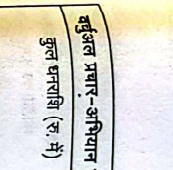 वर्चुअल प्रचार-अभियान
कुल धनराशि (रु. में)